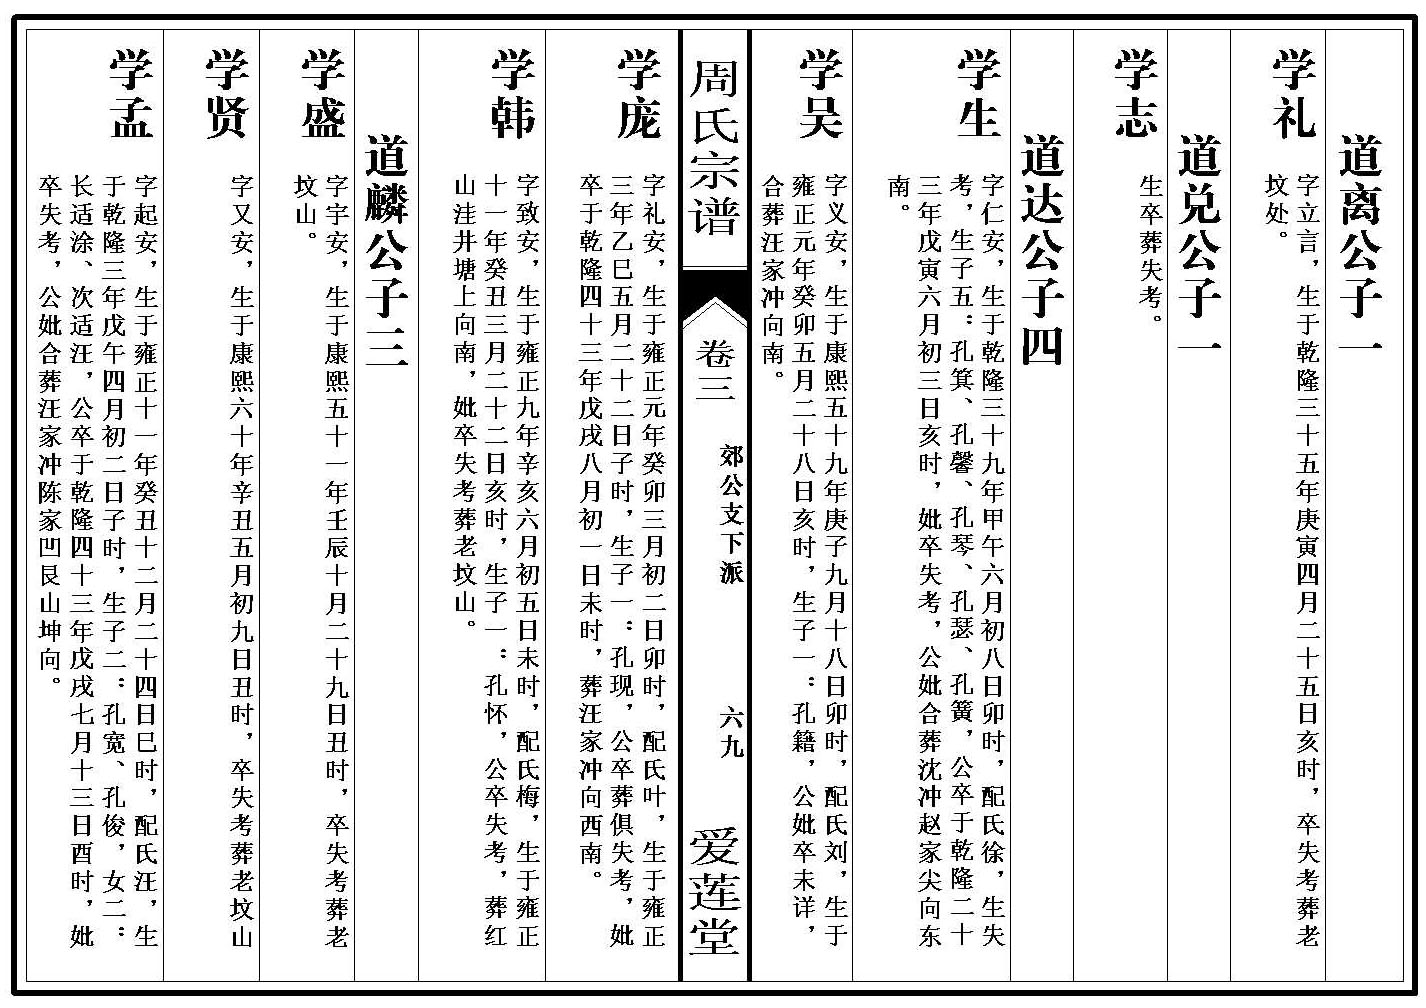 道离公子一
学礼
字立言，生于乾隆三十五年庚寅四月二十五日亥时，卒失考葬老
坟处。
道兑公子一
学志
生卒葬失考。
道达公子四
学生
字仁安，生于乾隆三十九年甲午六月初八日卯时，配氏徐，生失
考，生子五：孔箕、孔馨、孔琴、孔瑟、孔簧，公卒于乾隆二十
三年戊寅六月初三日亥时，妣卒失考，公妣合葬沈冲赵家尖向东
南。
学吴
字义安，生于康熙五十九年庚子九月十八日卯时，配氏刘，生于
雍正元年癸卯五月二十八日亥时，生子一：孔籍，公妣卒未详，
合葬汪家冲向南。
周氏宗谱
卷三
郊公支下派
六九
爱莲堂
学庞
字礼安，生于雍正元年癸卯三月初二日卯时，配氏叶，生于雍正
三年乙巳五月二十二日子时，生子一：孔现，公卒葬俱失考，妣
卒于乾隆四十三年戊戌八月初一日未时，葬汪家冲向西南。
学韩
字致安，生于雍正九年辛亥六月初五日未时，配氏梅，生于雍正
十一年癸丑三月二十二日亥时，生子一：孔怀，公卒失考，葬红
山洼井塘上向南，妣卒失考葬老坟山。
道麟公子三
学盛
字宇安，生于康熙五十一年壬辰十月二十九日丑时，卒失考葬老
坟山。
学贤
字又安，生于康熙六十年辛丑五月初九日丑时，卒失考葬老坟山
学孟
字起安，生于雍正十一年癸丑十二月二十四日巳时，配氏汪，生
于乾隆三年戊午四月初二日子时，生子二：孔宽、孔俊，女二：
长适涂、次适汪，公卒于乾隆四十三年戊戌七月十三日酉时，妣
卒失考，公妣合葬汪家冲陈家凹艮山坤向。